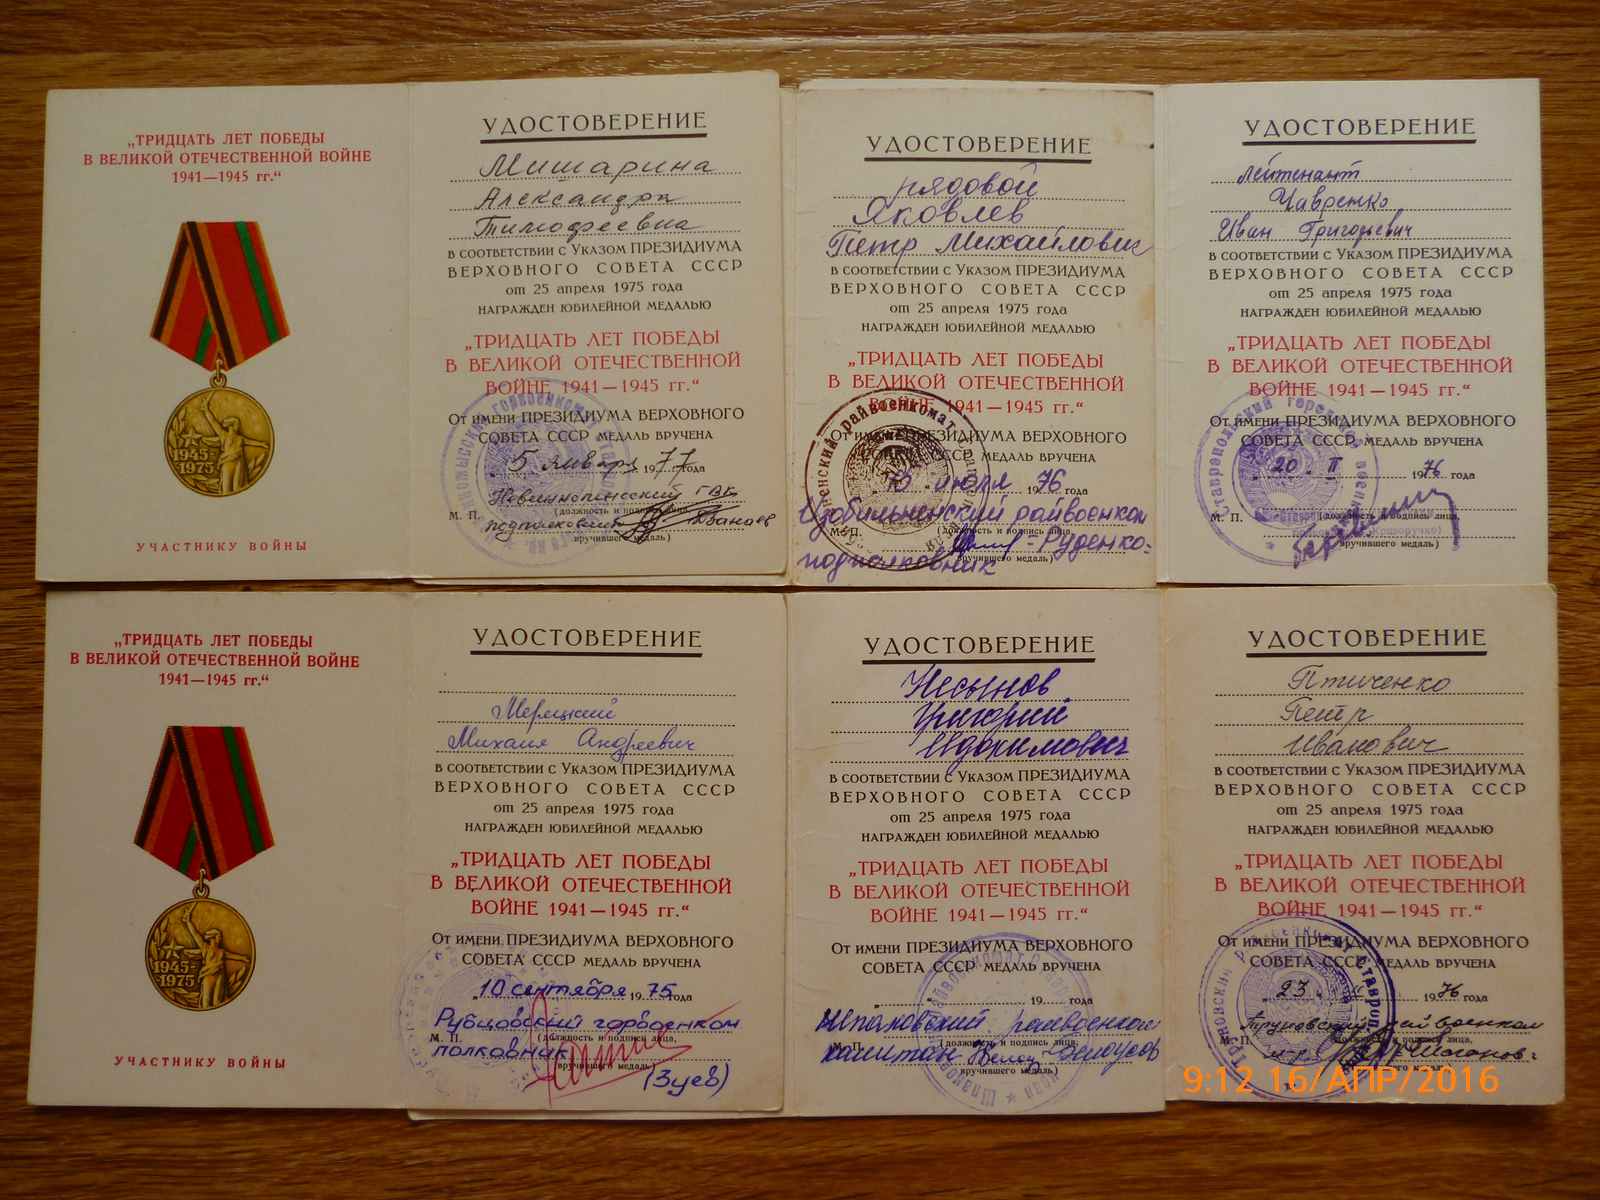 „ТРИДЦАТЬ ЛЕТ ПОБЕДЫ
В ВЕЛИКОЙ ОТЕЧЕСТВЕННОЙ ВОЙНЕ
1941—1945 гг.“
1945-
1975
УЧАСТНИКУ ВОЙНЫ
УДОСТОВЕРЕНИЕ
Мишарина
Александра
Тимофеевна
в соответствии с Указом ПРЕЗИДИУМА
ВЕРХОВНОГО СОВЕТА СССР
от 25 апреля 1975 года
НАГРАЖДЕН ЮБИЛЕЙНОЙ МЕДАЛЬЮ
„ТРИДЦАТЬ ЛЕТ ПОБЕДЫ
В ВЕЛИКОЙ ОТЕЧЕСТВЕННОЙ
ВОЙНЕ 1941—1945 гг.“
От имени ПРЕЗИДИУМА ВЕРХОВНОГО
СОВЕТА СССР МЕДАЛЬ ВРУЧЕНА
„5 января 1977 года
Невинномысский ГВК
М. П. (должность и подпись лица,
подполковник
вручившего медаль)
УДОСТОВЕРЕНИЕ
рядовой
Яковлев
Петр Михайлович
в соответствии с Указом ПРЕЗИДИУМА
ВЕРХОВНОГО СОВЕТА СССР
от 25 апреля 1975 года
НАГРАЖДЕН ЮБИЛЕЙНОЙ МЕДАЛЬЮ
„ТРИДЦАТЬ ЛЕТ ПОБЕДЫ
В ВЕЛИКОЙ ОТЕЧЕСТВЕННОЙ
ВОЙНЕ 1941—1945 гг.“
От имени ПРЕЗИДИУМА ВЕРХОВНОГО
СОВЕТА СССР МЕДАЛЬ ВРУЧЕНА
июля 1976 года
Изобильненский райвоенком
М. П. (должность и подпись лица,
Руденко
вручившего медаль)
подполковник
УДОСТОВЕРЕНИЕ
лейтенант
Чавренко
Иван Григорьевич
в соответствии с Указом ПРЕЗИДИУМА
ВЕРХОВНОГО СОВЕТА СССР
от 25 апреля 1975 года
НАГРАЖДЕН ЮБИЛЕЙНОЙ МЕДАЛЬЮ
„ТРИДЦАТЬ ЛЕТ ПОБЕДЫ
В ВЕЛИКОЙ ОТЕЧЕСТВЕННОЙ
ВОЙНЕ 1941—1945 гг.“
От имени ПРЕЗИДИУМА ВЕРХОВНОГО
СОВЕТА СССР МЕДАЛЬ ВРУЧЕНА
„20 II 1976 года
М. П. (должность и подпись лица,
вручившего медаль)
„ТРИДЦАТЬ ЛЕТ ПОБЕДЫ
В ВЕЛИКОЙ ОТЕЧЕСТВЕННОЙ ВОЙНЕ
1941—1945 гг.“
1945-
1975
УЧАСТНИКУ ВОЙНЫ
УДОСТОВЕРЕНИЕ
Мерецкий
Михаил Андреевич
в соответствии с Указом ПРЕЗИДИУМА
ВЕРХОВНОГО СОВЕТА СССР
от 25 апреля 1975 года
НАГРАЖДЕН ЮБИЛЕЙНОЙ МЕДАЛЬЮ
„ТРИДЦАТЬ ЛЕТ ПОБЕДЫ
В ВЕЛИКОЙ ОТЕЧЕСТВЕННОЙ
ВОЙНЕ 1941—1945 гг.“
От имени ПРЕЗИДИУМА ВЕРХОВНОГО
СОВЕТА СССР МЕДАЛЬ ВРУЧЕНА
„10 сентября 1975 года
Рубцовский горвоенком
М. П. (должность и подпись лица,
полковник
вручившего медаль)
(Зуев)
УДОСТОВЕРЕНИЕ
Несынов
Григорий
Евдокимович
в соответствии с Указом ПРЕЗИДИУМА
ВЕРХОВНОГО СОВЕТА СССР
от 25 апреля 1975 года
НАГРАЖДЕН ЮБИЛЕЙНОЙ МЕДАЛЬЮ
„ТРИДЦАТЬ ЛЕТ ПОБЕДЫ
В ВЕЛИКОЙ ОТЕЧЕСТВЕННОЙ
ВОЙНЕ 1941—1945 гг.“
От имени ПРЕЗИДИУМА ВЕРХОВНОГО
СОВЕТА СССР МЕДАЛЬ ВРУЧЕНА
19 года
Шпаковский райвоенком
М. П. (должность и подпись лица,
капитан Белоусов
вручившего медаль)
УДОСТОВЕРЕНИЕ
Птиченко
Петр
Иванович
в соответствии с Указом ПРЕЗИДИУМА
ВЕРХОВНОГО СОВЕТА СССР
от 25 апреля 1975 года
НАГРАЖДЕН ЮБИЛЕЙНОЙ МЕДАЛЬЮ
„ТРИДЦАТЬ ЛЕТ ПОБЕДЫ
В ВЕЛИКОЙ ОТЕЧЕСТВЕННОЙ
ВОЙНЕ 1941—1945 гг.“
От имени ПРЕЗИДИУМА ВЕРХОВНОГО
СОВЕТА СССР МЕДАЛЬ ВРУЧЕНА
„23 1976 года
Труновский райвоенком
М. П. (должность и подпись лица,
м-р
вручившего медаль)
9:12 16/АПР/2016